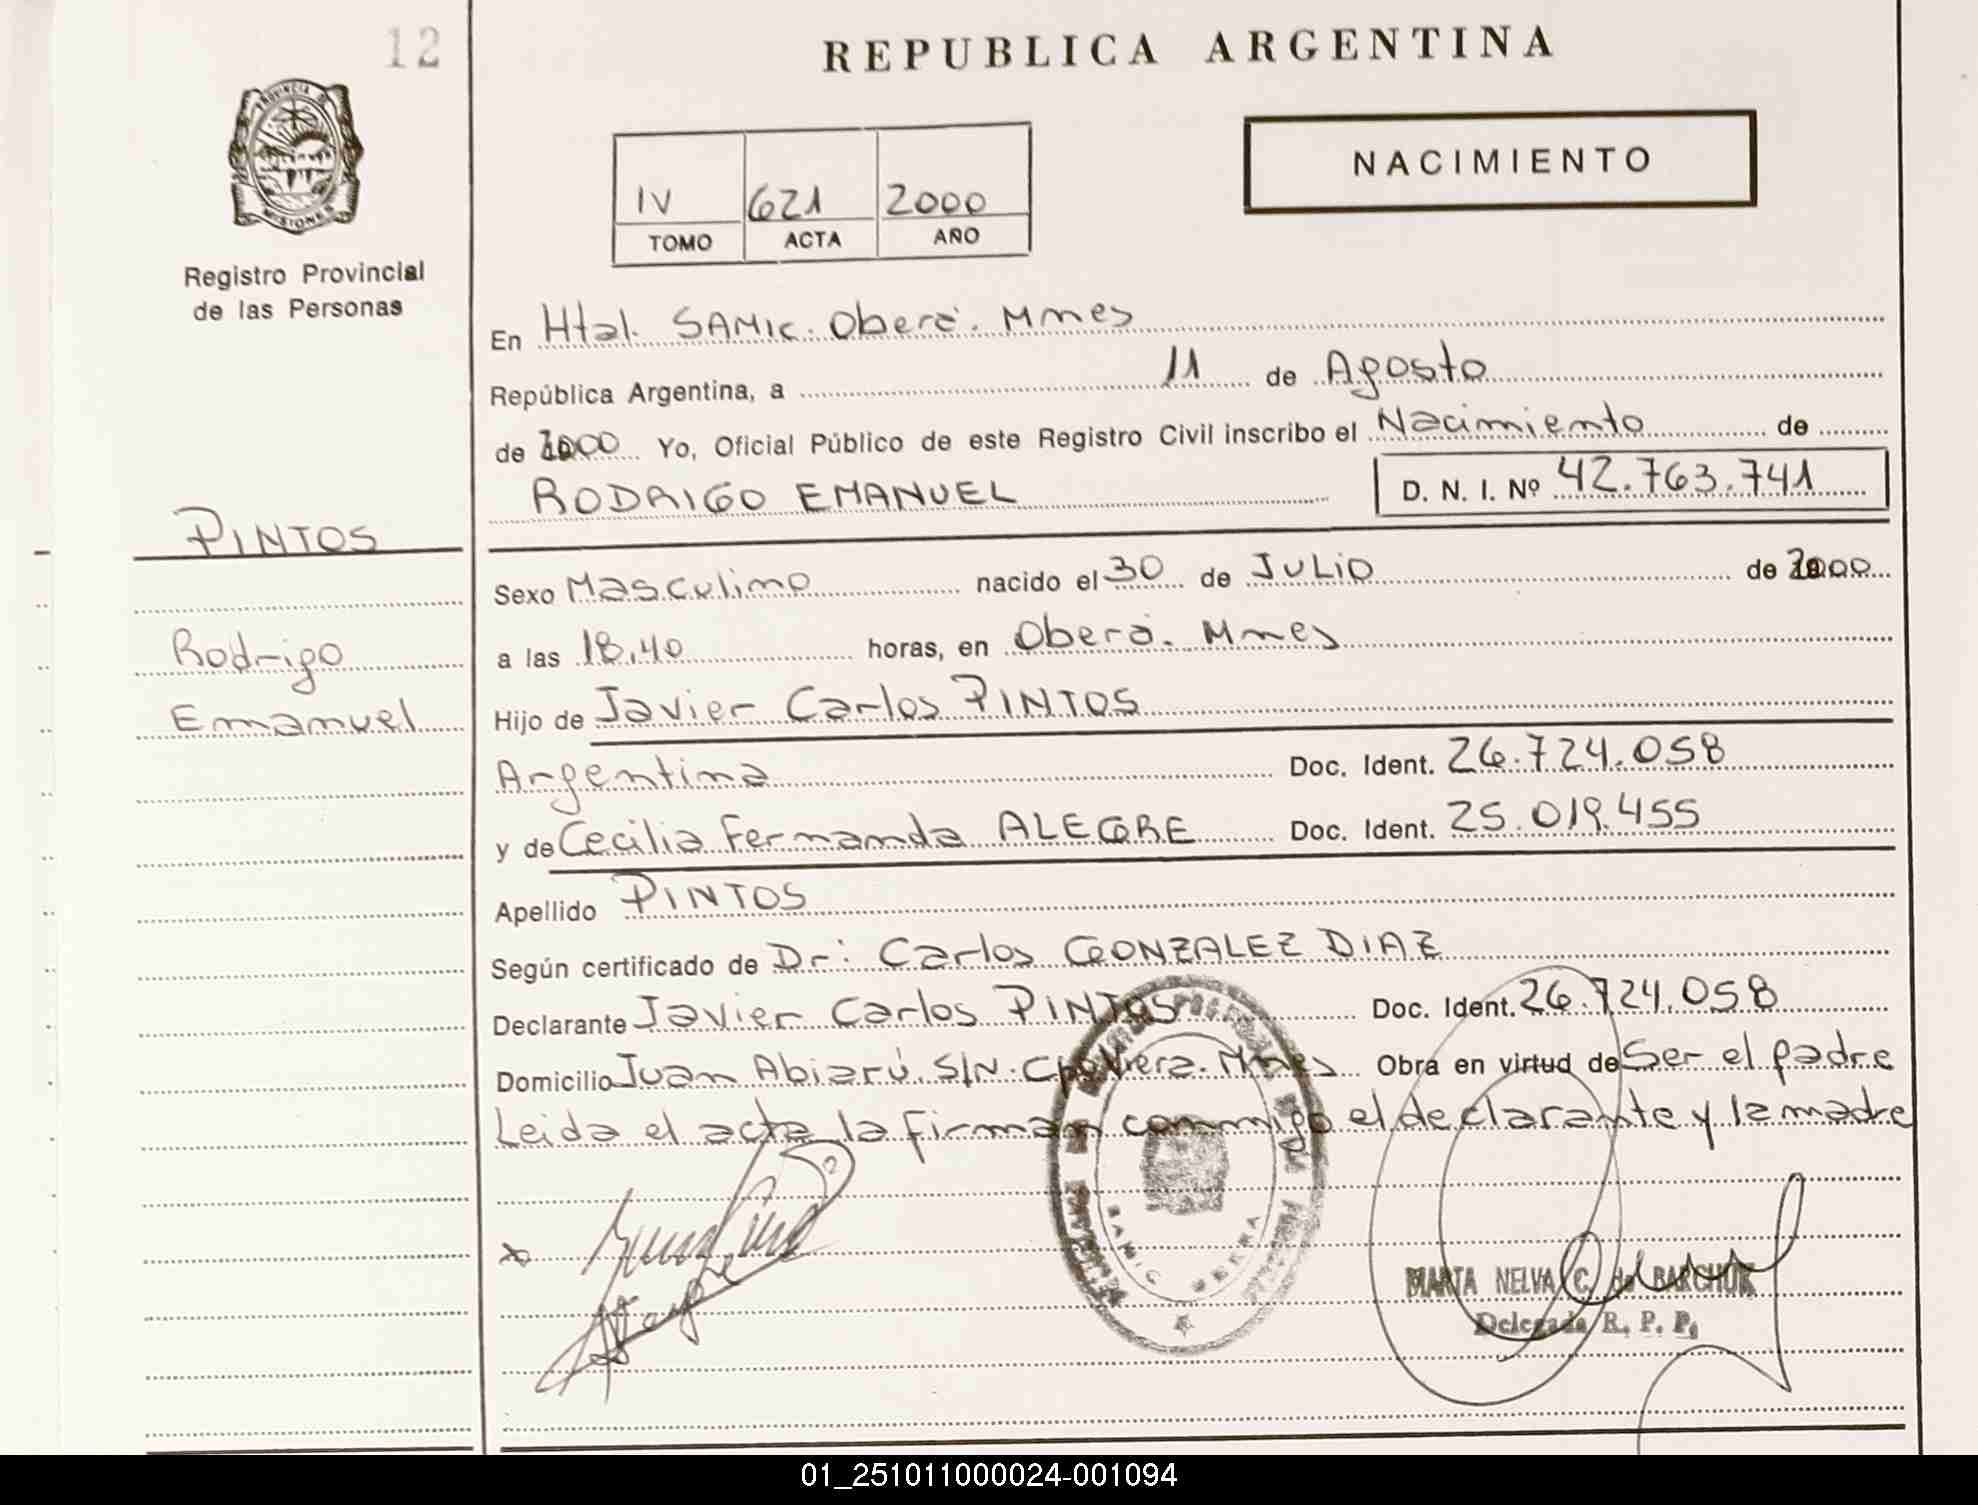 12
REPUBLICA ARGENTINA
PROVINCIA DE
MISIONES
NACIMIENTO
IV 621 2000
TOMO ACTA AÑO
Registro Provincial
de las Personas
En Htal. SAMIC. Oberá. Mnes
República Argentina, a 11 de Agosto
de 2000 Yo, Oficial Público de este Registro Civil inscribo el Nacimiento de
RODRIGO EMANUEL D. N. I. Nº 42.763.741
PINTOS
Rodrigo
Emanuel
Sexo Masculino nacido el 30 de JULIO de 2000
a las 18,40 horas, en Oberá. Mnes
Hijo de Javier Carlos PINTOS
Argentina Doc. Ident. 26.724.058
y de Cecilia Fernanda ALEGRE Doc. Ident. 25.019.455
Apellido PINTOS
Según certificado de Dr: Carlos GONZALEZ DIAZ
Declarante Javier Carlos PINTOS Doc. Ident. 26.724.058
Domicilio Juan Abiarú. S/N. Mnes Obra en virtud de Ser el padre
Leida el acta la firman conmigo el declarante y la madre
SAMIC OBERA
MARTA NELVA C. de BARCHUK
Delegada R. P. P.
01_251011000024-001094